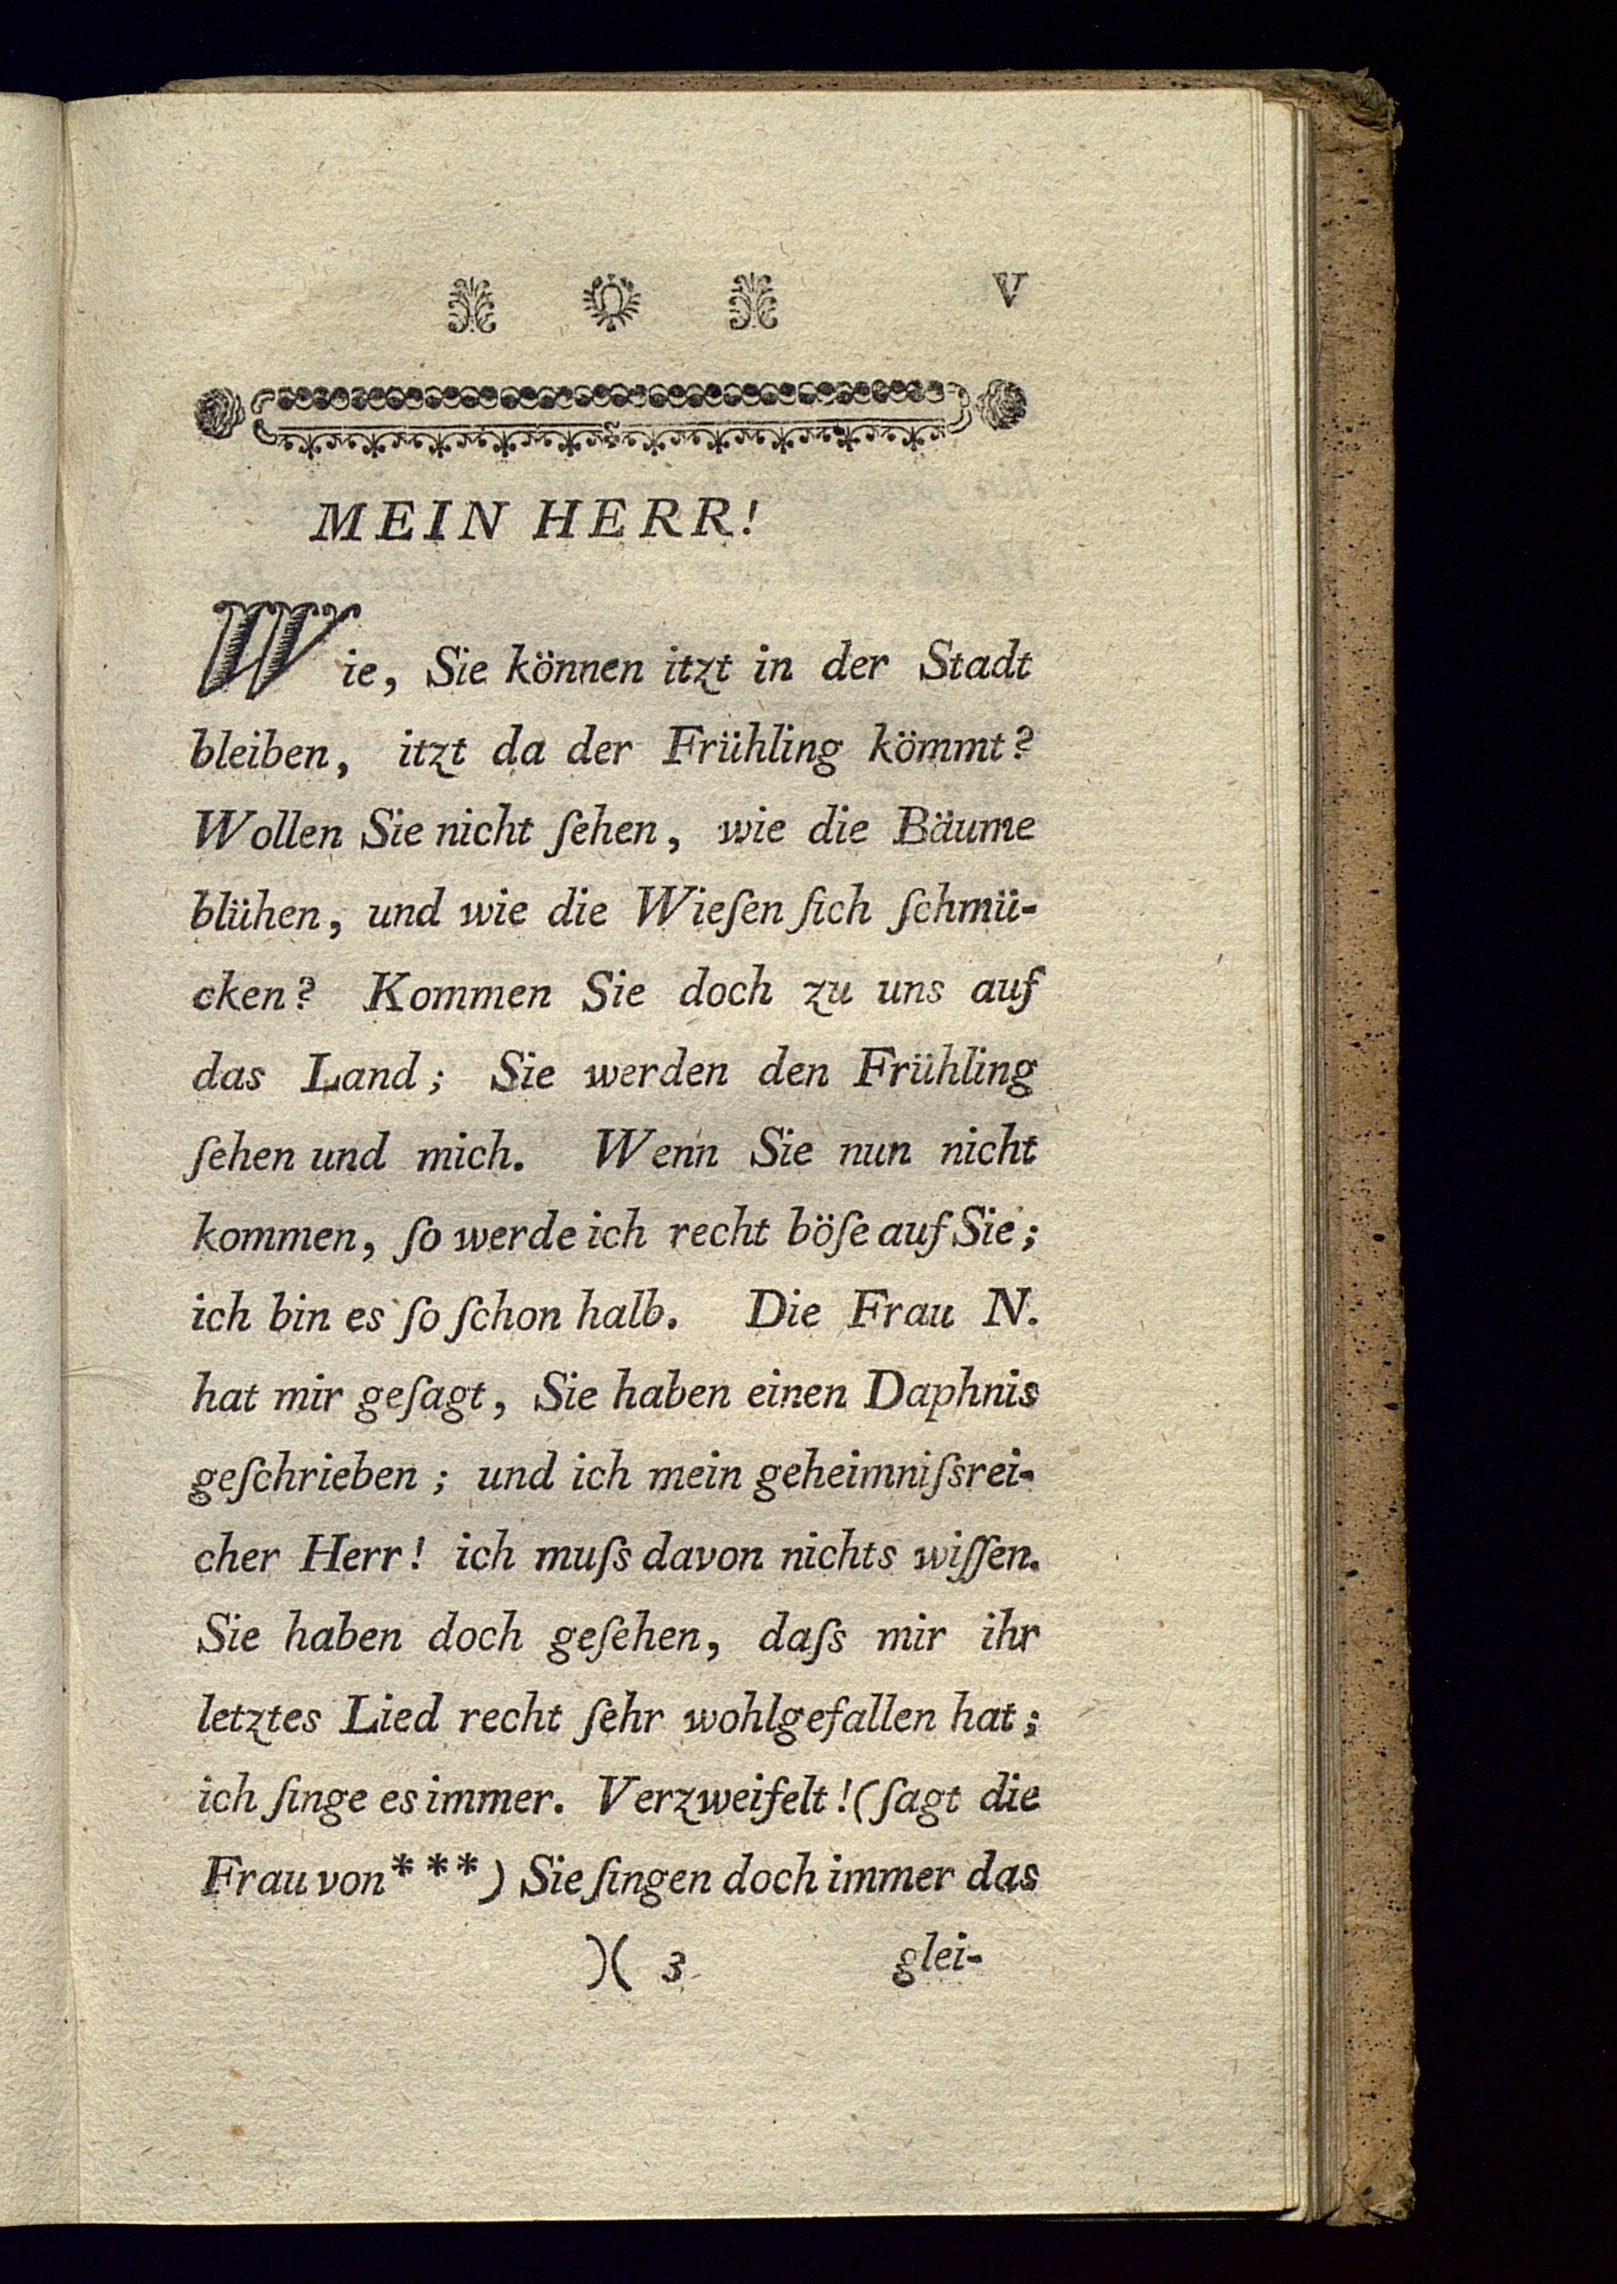 V
MEIN HERR!
Wie, Sie können itzt in der Stadt
bleiben, itzt da der Frühling kömmt?
Wollen Sie nicht ſehen, wie die Bäume
blühen, und wie die Wieſen ſich ſchmü-
cken? Kommen Sie doch zu uns auf
das Land; Sie werden den Frühling
ſehen und mich. Wenn Sie nun nicht
kommen, ſo werde ich recht böſe auf Sie;
ich bin es ſo ſchon halb. Die Frau N.
hat mir geſagt, Sie haben einen Daphnis
geſchrieben; und ich mein geheimniſsrei-
cher Herr! ich muſs davon nichts wiſſen.
Sie haben doch geſehen, daſs mir ihr
letztes Lied recht ſehr wohlgefallen hat;
ich ſinge es immer. Verzweifelt! (ſagt die
Frau von***) Sie ſingen doch immer das
)( 3 glei-